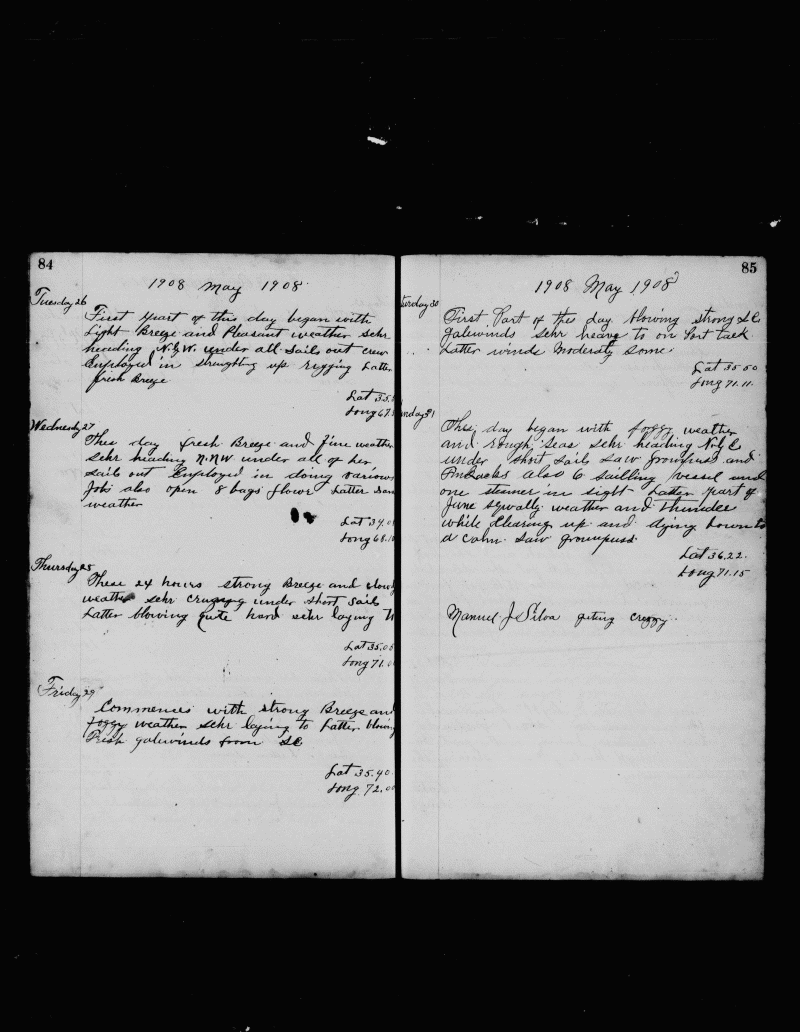 84
1908 May 1908
Tuesday 26
First part of this day began with
Light Breeze and Pleasant weather schr
heading N.W. under all sails out crew
Employed in straughting up rigging Latter
fresh Breeze
Lat 35.
Long 67.
Wednesday 27
This day fresh Breeze and fine weather
schr heading N.NW under all of her
sails out Employed in doing various
Jobs also open 8 bags flower Latter
weather
Lat 34.0
Long 68.10
Thursday 28
These 24 hours strong Breeze and
weather schr under short sails
Latter blowing quite hard schr laying
Lat 35.05
Long 71.0
Friday 29
Commences with strong Breeze an
foggy weather schr laying to Latter blowing
Fresh galewinds from SE
Lat 35.40
Long 72.00
85
1908 May 1908
turday 30
First Part of the day blowing strong S.E.
galewinds schr heave to on Port tack
Latter winds Moderats some
Lat 35.50
Long 71.11
nday 31
This day began with foggy weather
and rough seas schr heading N by E
under short sails saw and
also 6 sailling vessel and
one steamer in sight Latter part of
squally weather and thunder
while clearing up and dying down to
a calm saw
Lat 36.22
Long 71.15
Manuel J. Silva geting